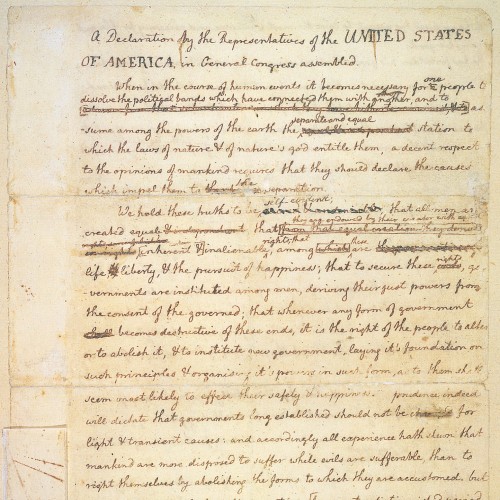 A Declaration by the Representatives of the UNITED STATES
OF AMERICA, in General Congress assembled.
When in the course of human events it becomes necessary for one people to
dissolve the political bands which have connected them with another, and to
as-
separate and equal
sume among the powers of the earth the station to
which the laws of nature & of nature's god entitle them, a decent respect
to the opinions of mankind requires that they should declare the causes
which impel them to the separation.
self-evident;
We hold these truths to be that all men are
they are endowed by their creator with
created equal & that from that equal creation they derive
rights; that these
in rights inherent & inalienable, among which are
life, liberty, & the pursuit of happiness; that to secure these rights, go-
vernments are instituted among men, deriving their just powers from
the consent of the governed; that whenever any form of government
shall becomes destructive of these ends, it is the right of the people to alter
or to abolish it, & to institute new government, laying it's foundation on
such principles & organising it's powers in such form, as to them shall
seem most likely to effect their safety & happiness. prudence indeed
will dictate that governments long established should not be changed for
light & transient causes: and accordingly all experience hath shewn that
mankind are more disposed to suffer while evils are sufferable, than to
right themselves by abolishing the forms to which they are accustomed. but